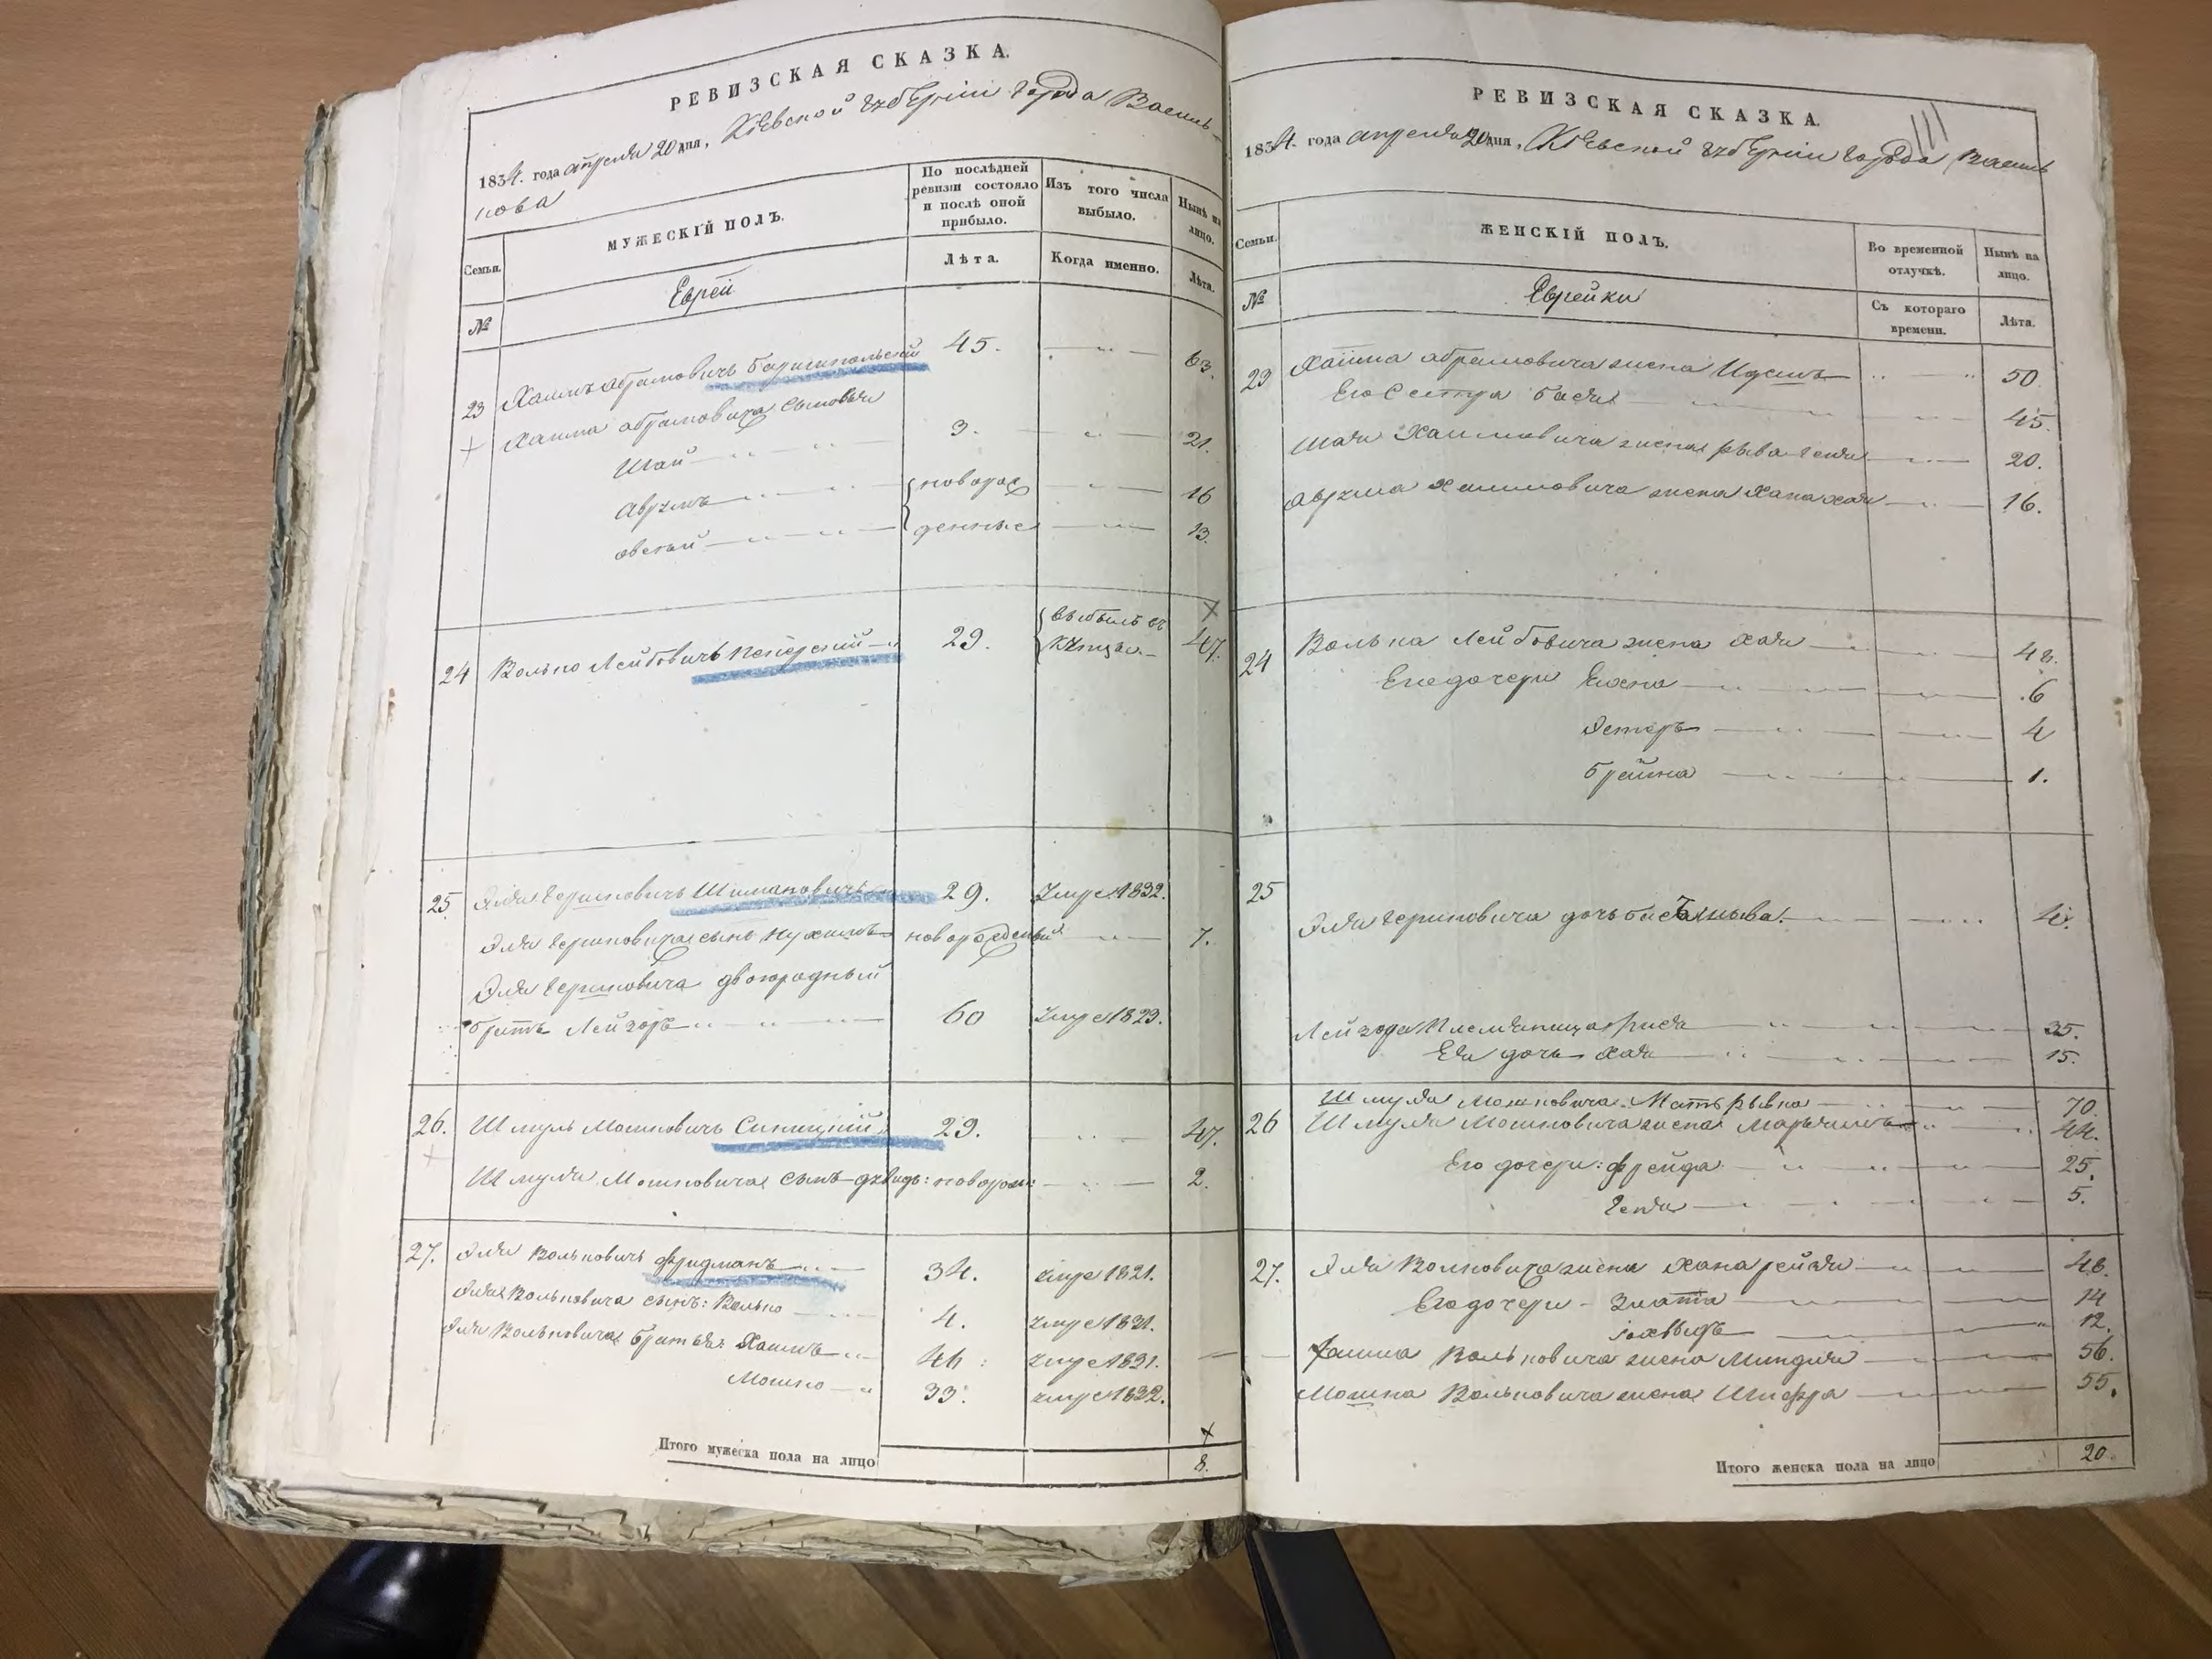 РЕВИЗСКАЯ СКАЗКА.
1834. года апреля 20 дня, Кіевской губерніи города Василь-
кова
Семьи. МУЖЕСКІЙ ПОЛЪ. По послѣдней ревизіи состояло и послѣ оной прибыло. Изъ того числа выбыло. Нынѣ на лицо.
№ Еврей Лѣта. Когда именно. Лѣта.
23 Хаимъ Абрамовичъ Бориспольскій 45. 63.
Хаима Абрамовича сыновья
Шая 3. 21.
Аврумъ новорож 16
Овсей денные 13.
24 Волько Лейбовичъ 29. выбылъ въ купцы 47.
25. Эля Гершковичъ Шимановичъ 29. умре 1832.
Эля Гершковича сынъ Нухимъ новорожденный 7.
Эля Гершковича двоюродный
братъ Лейзоръ 60 умре 1823.
26. Шмуль Мошковичъ Синицкій 29. 47.
Шмуля Мошковича сынъ Дувидъ: новорож: 2.
27. Эля Вольковичъ Фридманъ 34. умре 1821.
Эля Вольковича сынъ: Волько 4. умре 1821.
Эля Вольковича братья: Хаимъ 46: умре 1831.
Мошко 33. умре 1832.
Итого мужеска пола на лицо 8.
РЕВИЗСКАЯ СКАЗКА.
1834. года апреля 20 дня, Кіевской губерніи города Василь
Семьи. ЖЕНСКІЙ ПОЛЪ. Во временной отлучкѣ. Нынѣ на лицо.
№ Еврейки Съ котораго времени. Лѣта.
23 Хаима Абрамовича жена 50
Его сестра Бася 45.
Шая Хаимовича жена Рыва Геня 20.
Аврума Хаимовича жена Хана Хая 16.
24 Волька Лейбовича жена Хая
Его дочери 6
Эстеръ 4
Брейна 1.
25 Эля Гершковича дочь
Лейзора племянница 35.
Ея дочь Хая 15.
Шмуля Мошковича Мать Рывка 70.
26 Шмуля Мошковича жена Марьямъ 44.
Его дочери: Фрейда 25.
Геня 5.
27. Эля Вольковича жена Хана Рейзя 48.
Его дочери - Злата 14
12.
Хаима Вольковича жена Миндля 56.
Мошка Вольковича жена Шифра 55.
Итого женска пола на лицо 20.